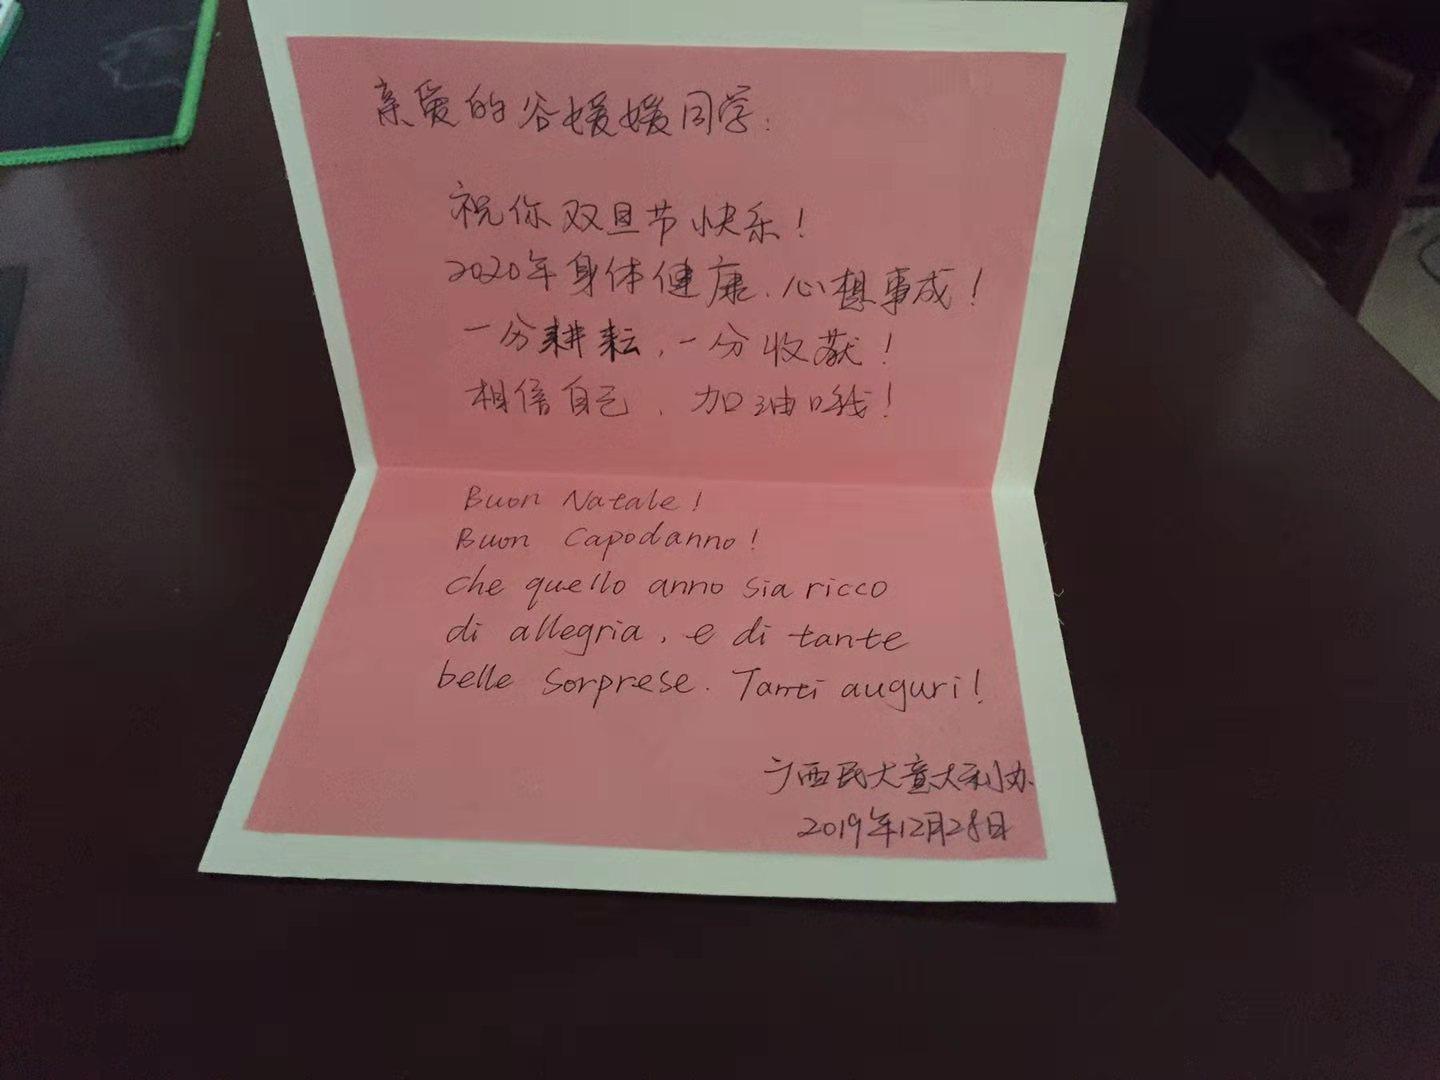 亲爱的谷媛媛同学：
祝你双旦节快乐！
2020年身体健康、心想事成！
一分耕耘，一分收获！
相信自己，加油哦！
Buon Natale!
Buon Capodanno!
Che quello anno sia ricco
di allegria, e di tante
belle sorprese. Tanti auguri!
广西民大意大利办
2019年12月28日